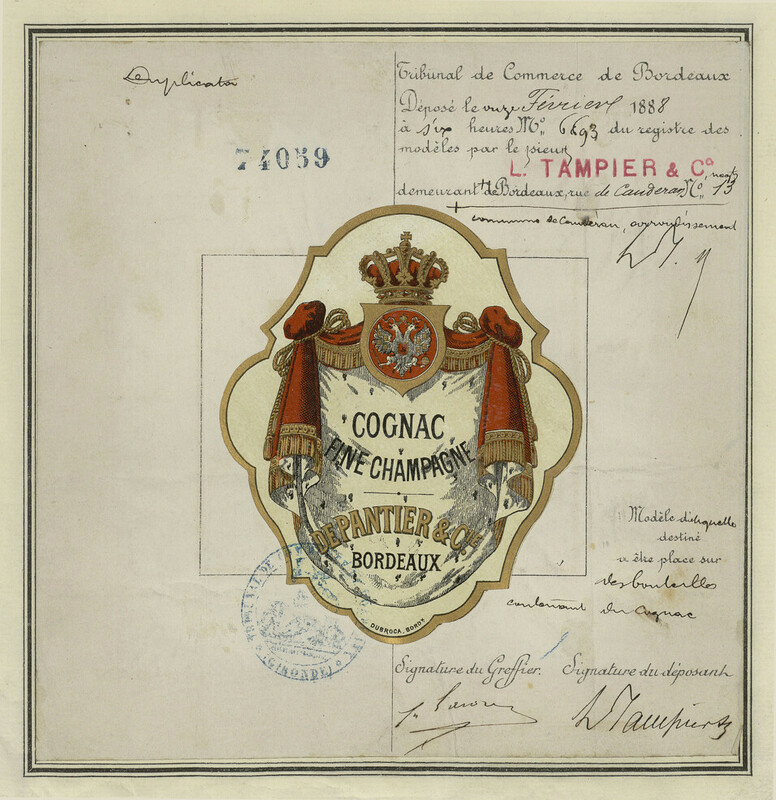 Duplicata
74059
Tribunal de Commerce de Bordeaux
Déposé le onze Février 1888
à six heures Nº 6693 du registre des
modèles par le sieur
L. TAMPIER & Cº
demeurant à Bordeaux, rue de Cauderan Nº 13
commune de Caudéran, arrondissement
COGNAC
FINE CHAMPAGNE
DEPANTIER & Cie
BORDEAUX
DUBROCA. BORDx
Modèle d'étiquette
destiné
a être place sur
des bouteilles
contenant du cognac
TRIBUNAL DE
(GIRONDE)
Signature du Greffier.
Signature du déposant
L Tampier